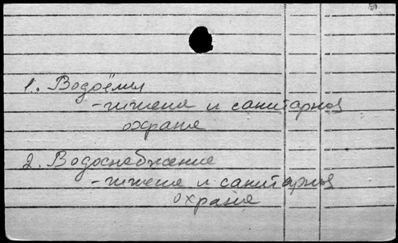 1. Водоёмы
- гигиена и санитарная
охрана
2. Водоснабжение
- гигиена и санитарная
охрана